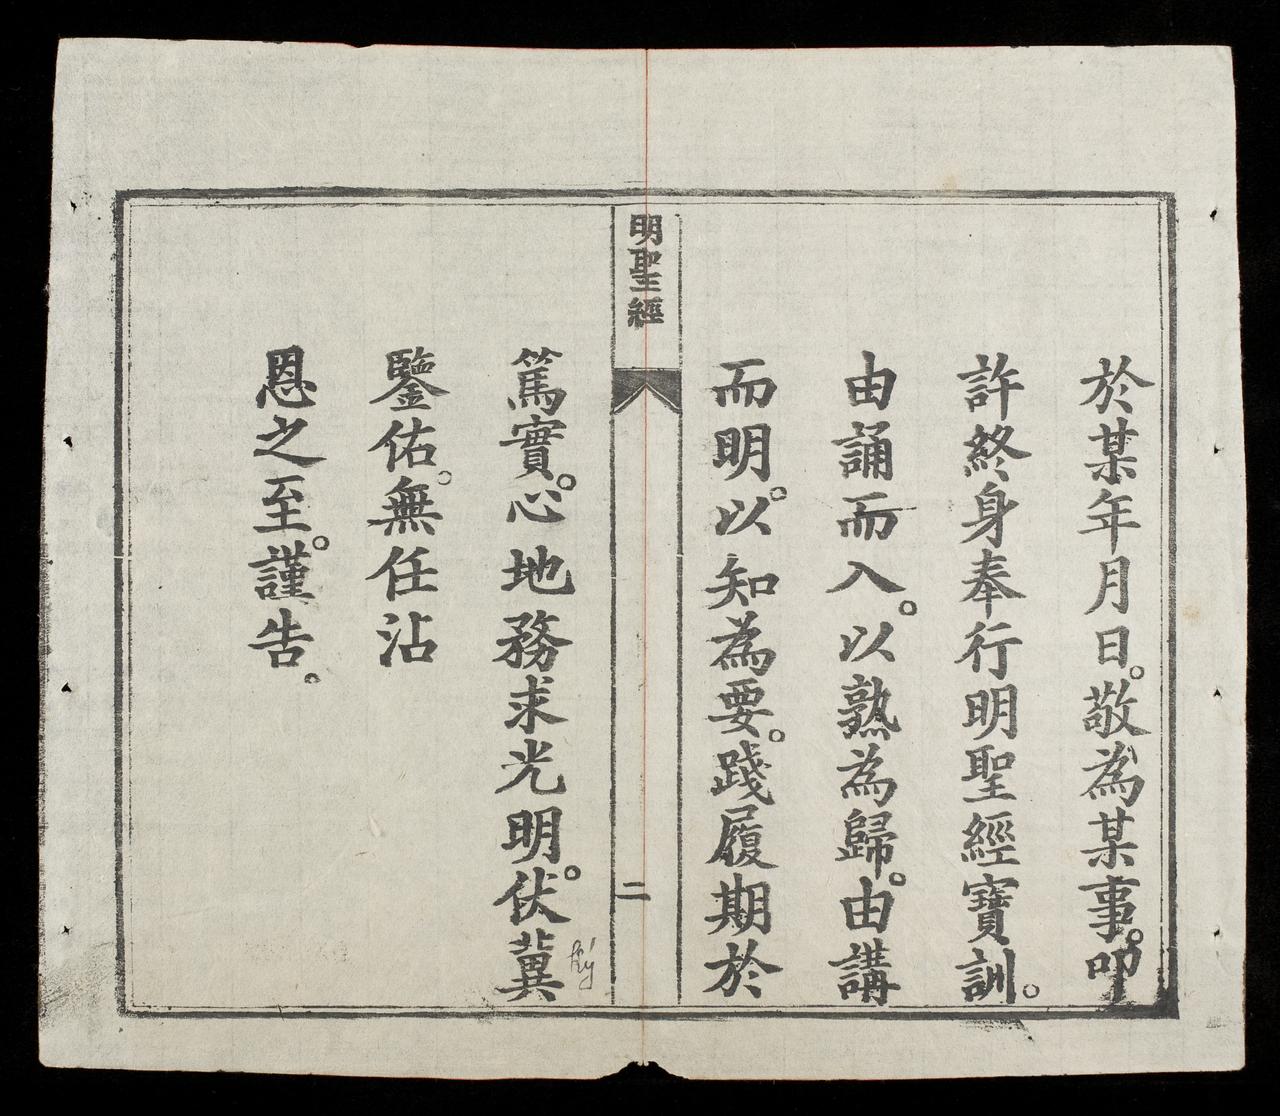 於某年月日。敬為某事。叩
許終身奉行明聖經寶訓。
由誦而入。以熟為歸。由講
而明。以知為要。踐履期於
明聖經
二
篤實。心地務求光明。伏冀
ký
鑒佑。無任沾
恩之至。謹告。